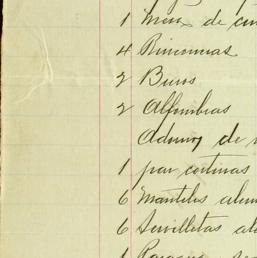 1 Mesa de
4 Rinconeras
2 Buros
2 Alfombras
Adornos de
1 par cortinas
6 Manteles
6 Servilletas
1